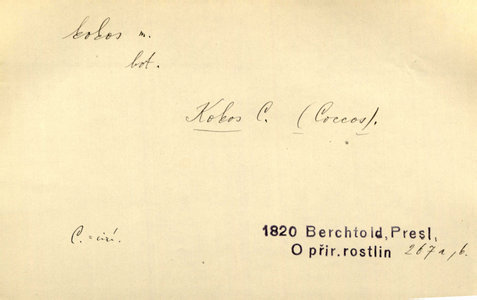 kokos m.
bot.
Kokos C. (Coccos).
C. = cizí.
1820 Berchtold, Presl,
O přír. rostlin 267a, b.